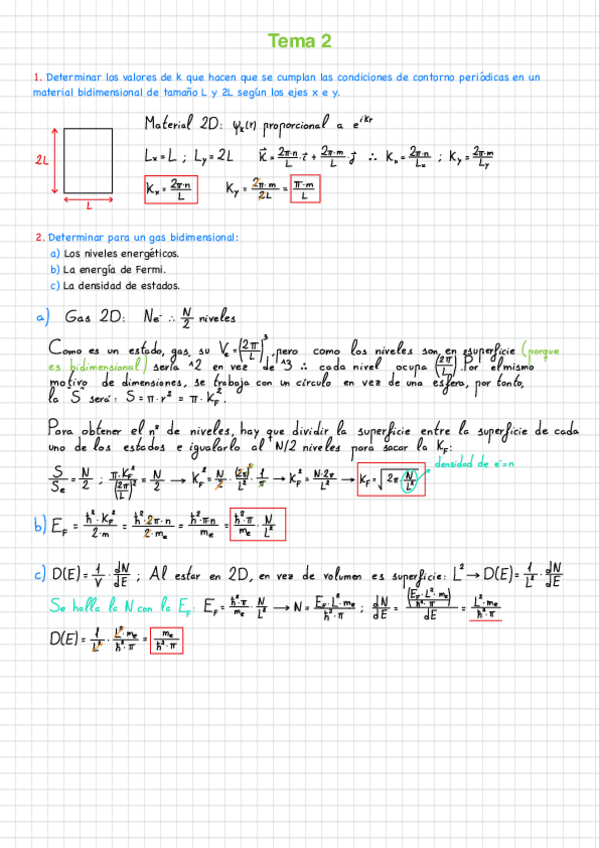 Tema 2
1. Determinar los valores de k que hacen que se cumplan las condiciones de contorno periódicas en un
material bidimensional de tamaño L y 2L según los ejes x e y.
Material 2D: ψₖ(r) proporcional a e^{ikr}
2L
L
Lx = L ; Ly = 2L K⃗ = 2π·n/L · i⃗ + 2π·m/L · j⃗ ∴ Kx = 2π·n/Lx ; Ky = 2π·m/Ly
Kx = 2π·n/L Ky = 2π·m/2L = π·m/L
2. Determinar para un gas bidimensional:
a) Los niveles energéticos.
b) La energía de Fermi.
c) La densidad de estados.
a) Gas 2D: Ne⁻ ∴ N/2 niveles
Como es un estado, gas, su Ve = (2π/L)³, pero como los niveles son en superficie (porque
es bidimensional) sería ^2 en vez de ^3 ∴ cada nivel ocupa (2π/L)². Por el mismo
motivo de dimensiones, se trabaja con un círculo en vez de una esfera, por tanto,
la S será: S = π·r² = π·K_F².
Para obtener el nº de niveles, hay que dividir la superficie entre la superficie de cada
uno de los estados e igualarlo al N/2 niveles para sacar la K_F:
densidad de e⁻ = n
S/Se = N/2 ; π·K_F²/(2π/L)² = N/2 → K_F² = N/2 · (2π)²/L² · 1/π → K_F² = N·2π/L² → K_F = √(2π N/L²)
b) E_F = ħ²·K_F²/2·m = ħ²·2π·n/2·me = ħ²·πn/me = ħ²·π/me · N/L²
c) D(E) = 1/V · dN/dE ; Al estar en 2D, en vez de volumen es superficie: L² → D(E) = 1/L² · dN/dE
Se halla la N con la E_F: E_F = ħ²·π/me · N/L² → N = E_F·L²·me/ħ²·π ; dN/dE = d(E_F·L²·me/ħ²·π)/dE = L²·me/ħ²·π
D(E) = 1/L² · L²·me/ħ²·π = me/ħ²·π